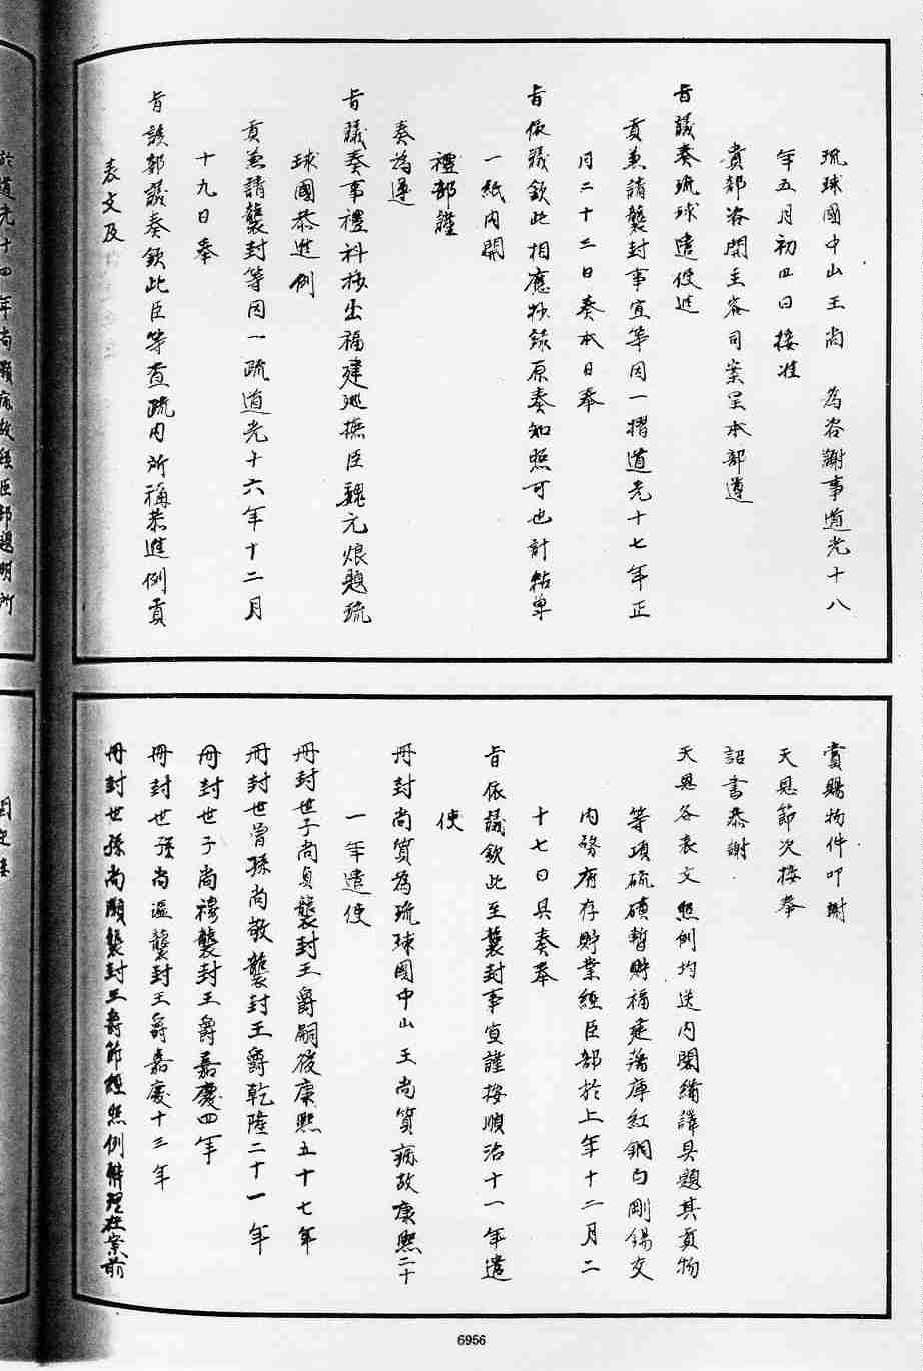 琉球國中山王尚　為咨謝事道光十八
年五月初四日接准
貴部咨開主客司案呈本部遵
旨議奏琉球遣使進
貢兼請襲封事宜等因一摺道光十七年正
月二十三日奏本日奉
旨依議欽此相應抄錄原奏知照可也計粘單
一紙內開
禮部謹
奏為遵
旨議奏事禮科抄出福建巡撫臣魏元烺題琉
球國恭進例
貢兼請襲封等因一疏道光十六年十二月
十九日奉
旨該部議奏欽此臣等查疏內所稱恭進例貢
表文及
賞賜物件叩謝
天恩節次接奉
詔書恭謝
天恩各表文照例均送內閣繙譯具題其貢物
等項硫磺暫貯福建藩庫紅銅白剛錫交
內務府存貯業經臣部於上年十二月二
十七日具奏奉
旨依議欽此至襲封事宜謹按順治十一年遣
使
冊封尚質為琉球國中山王尚質病故康熙二十
一年遣使
冊封世子尚貞襲封王爵嗣後康熙五十七年
冊封世曾孫尚敬襲封王爵乾隆二十一年
冊封世子尚穆襲封王爵嘉慶四年
冊封世孫尚溫襲封王爵嘉慶十三年
冊封世孫尚灝襲封王爵節經照例辦理在案前
於道光十四年尚灝病故經臣部題明所
6956